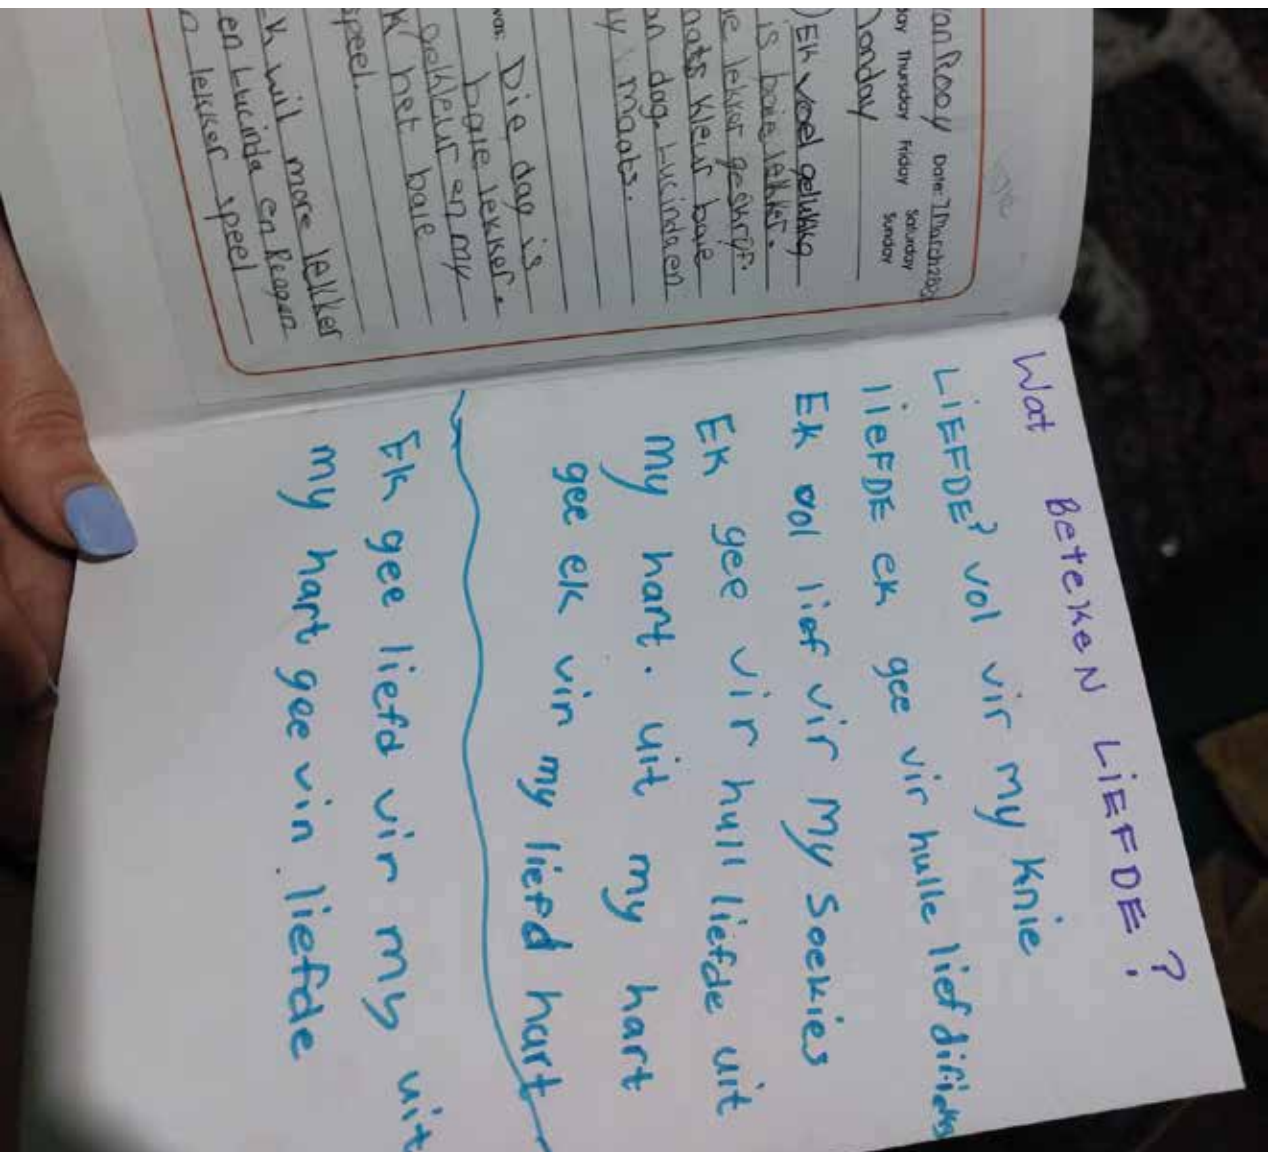 van Rooy Date: 7 March 202
day Thursday Friday Saturday Sunday
Monday
Ek voel gelukkig
is baie lekker.
e lekker geskryf.
maats kleur baie
an dag. Lucinda en
y maats.
was: Die dag is
baie lekker.
gekleur en my
k het baie
speel.
k wil more lekker
en Lucinda en Reagan
n lekker speel
Wat BeteKeN LiEFDE?
LiEFDE? vol vir my knie
liiEFDE ek gee vir hulle lief
Ek vol lief vir my Soekies
Ek gee vir hull liefde uit
my hart. uit my hart
gee ek vir my liefd hart
Ek gee liefd vir my uit
my hart gee vin liefde